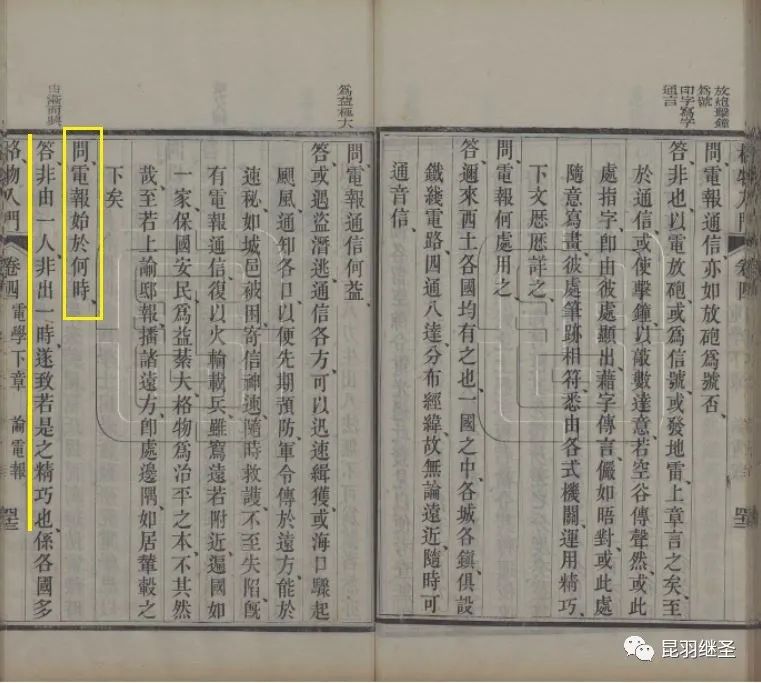 格物入門 卷四
放炮擊鐘
爲號
印字寫字
通言
問、電報通信、亦如放砲爲號否、
答、非也、以電放砲、或爲信號、或發地雷、上章言之矣、至
於通信、或使擊鐘、以敲數達意、若空谷傳聲然、或此
處指字、卽由彼處顯出、藉字傳言、儼如晤對、或此處
隨意寫畫、彼處筆跡相符、悉由各式機關、運用精巧、
下文歷歷詳之、
問、電報何處用之、
答、邇來西土各國、均有之也、一國之中、各城各鎮、俱設
鐵綫電路、四通八達、分布經緯、故無論遠近、隨時可
通音信、
爲益極大
問、電報通信何益、
答、或遇盜潛逃、通信各方、可以迅速緝獲、或海口驟起
颶風、通知各口、以便先期預防、軍令傳於遠方、能於
速秘、如城邑被困、寄信神速、隨時救護、不至失陷、旣
有電報通信、復以火輪載兵、雖寫遠若附近、遍國如
一家、保國安民、爲益大、格物爲治平之本、不其然
哉、至若上諭邸報、播諸遠方、卽處邊隅、如居輦轂之
下矣、
由漸而興
問、電報始於何時、
答、非由一人、非出一時、遂致若是之精巧也、係各國多
格物入門 卷四 電學下章 論電報
昆羽继圣